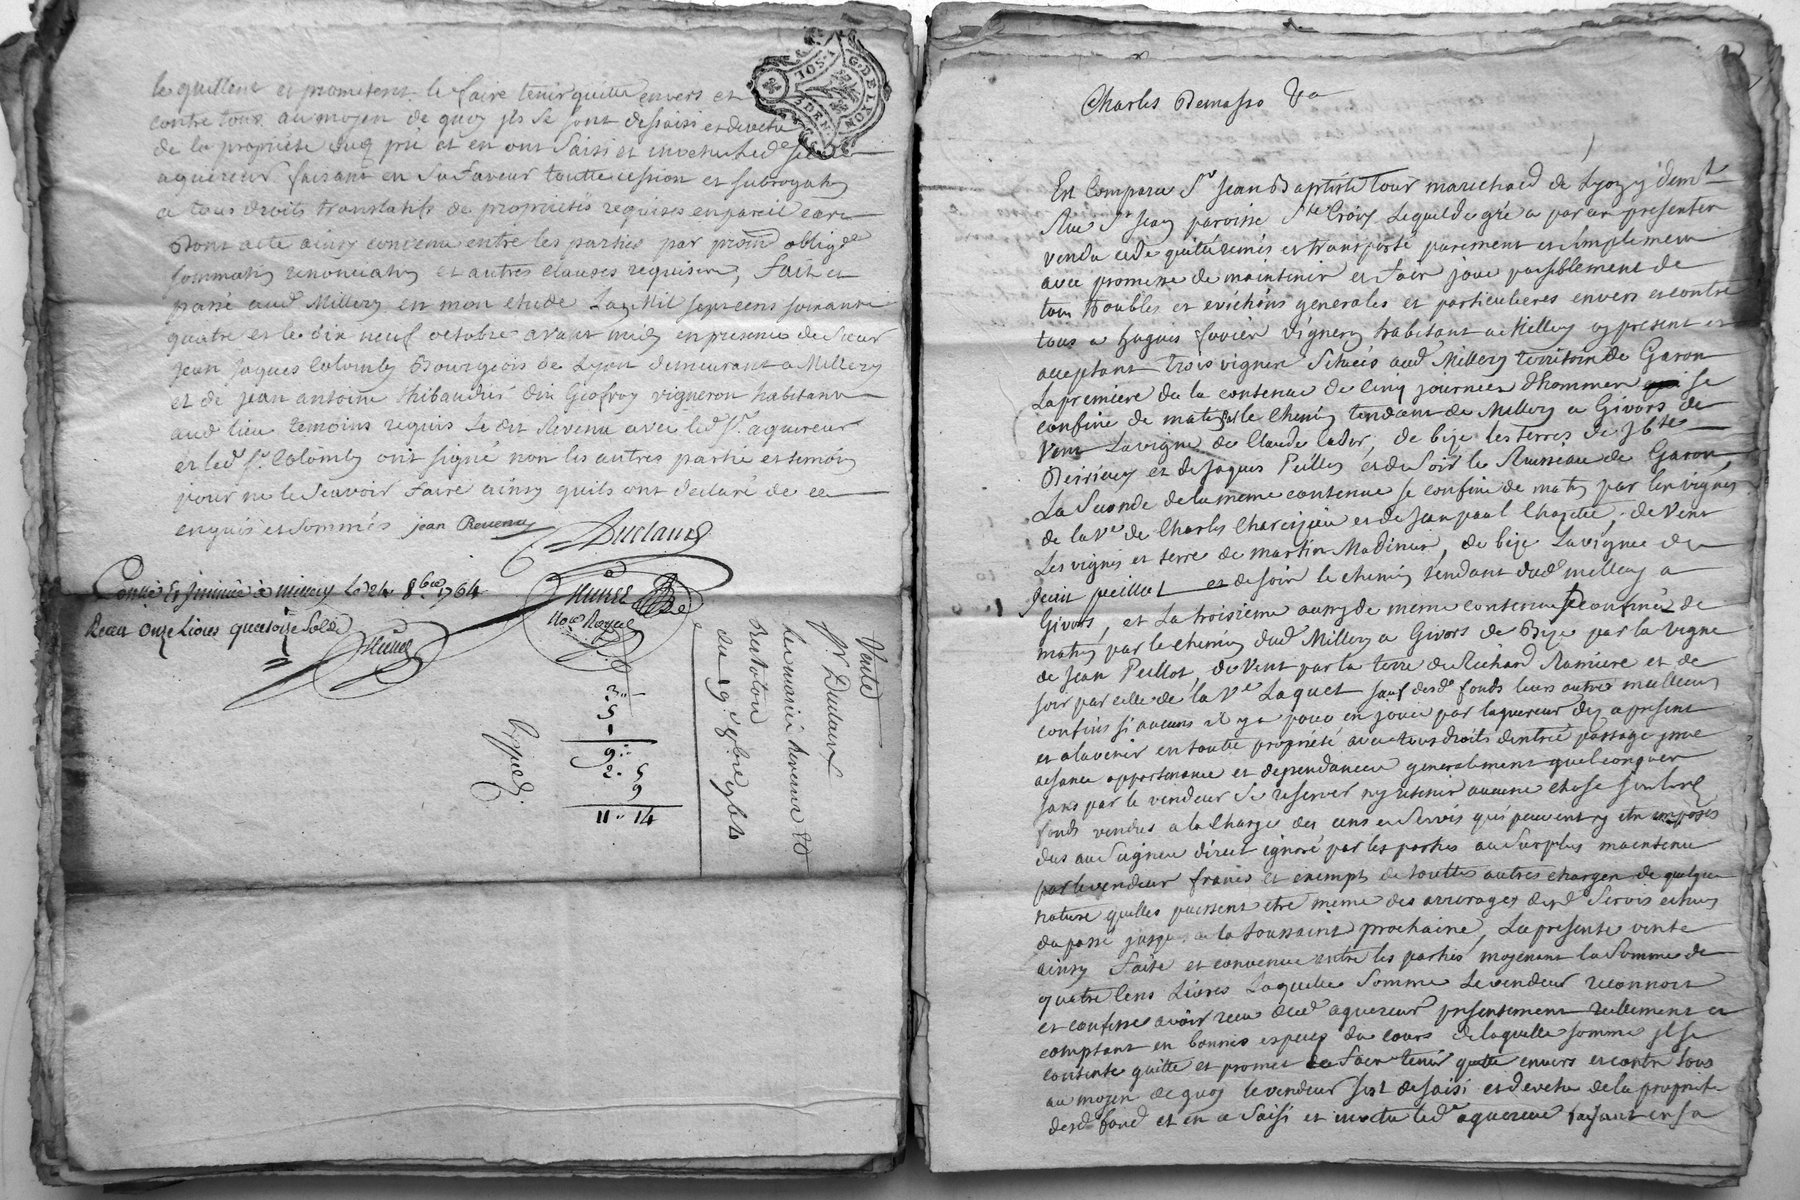 le quittent et promettent le faire tenir quitte envers et
contre tous au moyen de quoy ils se sont dessaisi et devetu
de la propriété et en ont saisi et investu led.
aquereur faisant en sa faveur toutte cession et subrogation
a tous droits translatifs de propriétés requises en pareil cas
Dont acte ainsy convenu entre les parties par prom obligon
sommation renonciation et autres clauses requises, fait et
passé aud Millery en mon etude Lan Mil sept cens soixante
quatre et le dix neuf octobre avant midy en presence de Sieur
Jean Jaques Colomby Bourgeois de Lyon demeurant a Millery
et de Jean antoine Thibaudié dit Geofroy vigneron habitant
aud lieu temoins requis Le dit Revenu avec led Sr. aquereur
et led Sr. Colomby ont signé non les autres partie et temoin
pour ne le scavoir faire ainsy quils ont declaré de ce
enquis et sommés jean Revenu
Duclaux
Contlé et insinué à millery Le 24 8bre 1764
Reçu onze Livres quatorze sols
Nore Royal
3
5
9
2 5
9
11 14
Expedy
Vente
Sr Duclaux
Les mariés Revenu et
Ratoton
du 19e 8bre 1764
10 SOL
G. DE LYON
DEN
Charles Demasso Va
Est Comparu Sr Jean Baptiste Tour marechard de Lyon y demt
Rue St Jean paroisse Ste Croix Lequel de gré a par ces presentes
vendu cede quité remis et transporté purement et simplement
avec promesse de maintenir et faire jouir paisiblement de
tous troubles et evictions generales et particulieres envers et contre
tous a hugues Favier vigneron habitant a Millery cy present et
acceptant trois vignes situées aud Millery territoire de Garon
La premiere de la contenue de cinq journées d'hommes se
confine de matin par le chemin tendant de Millery a Givors de
Vent La vigne de Claude Cadur, de bize les terres de
et de Jaques Peillon et de soir le Ruisseau de Garon,
La seconde de la meme contenue se confine de matin par les vignes
de la Ve de Charles et de Jean paul, de Vent
Les vignes et terre de martin Madinier, de bize La vigne de
Jean peillot et de soir le chemin tendant dud millery a
Givors, et La troisieme aussy de meme contenue se confine de
matin par le chemin dud Millery a Givors de Bize par la vigne
de Jean Peillot, de Vent par la terre de Richard Ramiere et de
soir par celle de la Ve Laquet sauf desd. fonds leurs autres meilleurs
confins si aucuns il y a pour en jouir par laquereur dez a present
et a lavenir en toutte propriété avec tous droits dentrée passage
aisance appartenance et dependances generalement quelconques
sans par le vendeur se reserver ny retenir aucune chose sur lesd
fonds vendus a la charge des cens et servis qui peuvent y etre imposés
dus au Seigneur direct ignoré par les parties au surplus maintenu
par le vendeur francs et exempts de touttes autres charges de quelque
nature quelles puissent etre meme des arrerages desd Servis echus
du passé jusques a la toussaint prochaine, La presente vente
ainsy faite et convenue entre les parties moyenant la somme de
quatre Cens Livres Laquelle somme Le vendeur reconnoit
et confesse avoir recu dud aquereur presentement reellement et
comptant en bonnes especes du cours de laquelle somme il se
contente quitte et promet le faire tenir quitte envers et contre tous
au moyen de quoy le vendeur sest desaisi et devetu de la propriété
desd fond et en a saisi et investu led. aquereur faisant en sa